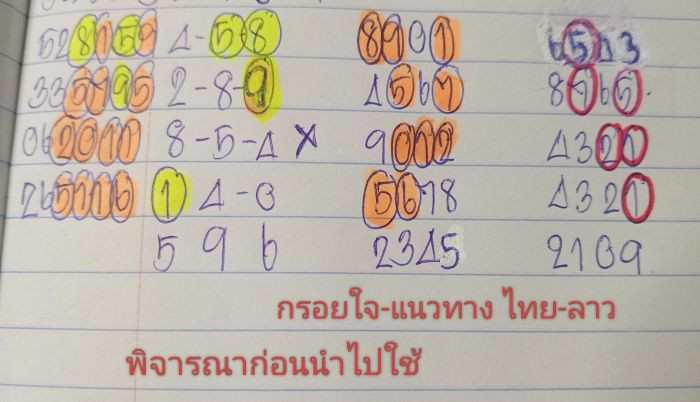 4-5-8 8901 6543
2-8-9 4567 8765
8-5-4 x 9012 4321
1 4-0 5678 4321
5 9 6 2345 2109
กรอยใจ-แนวทาง ไทย-ลาว
พิจารณาก่อนนำไปใช้